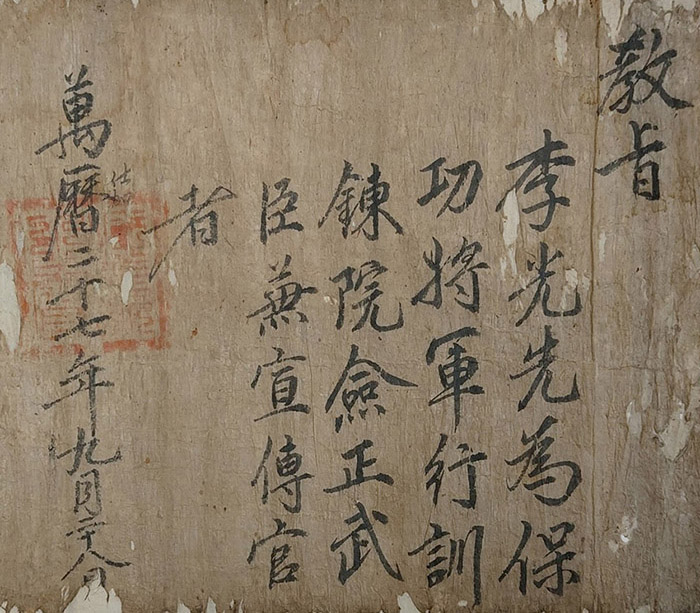 教旨
李光先為保
功將軍行訓
鍊院僉正武
臣兼宣傳官
者
萬曆二十七年九月二十八日